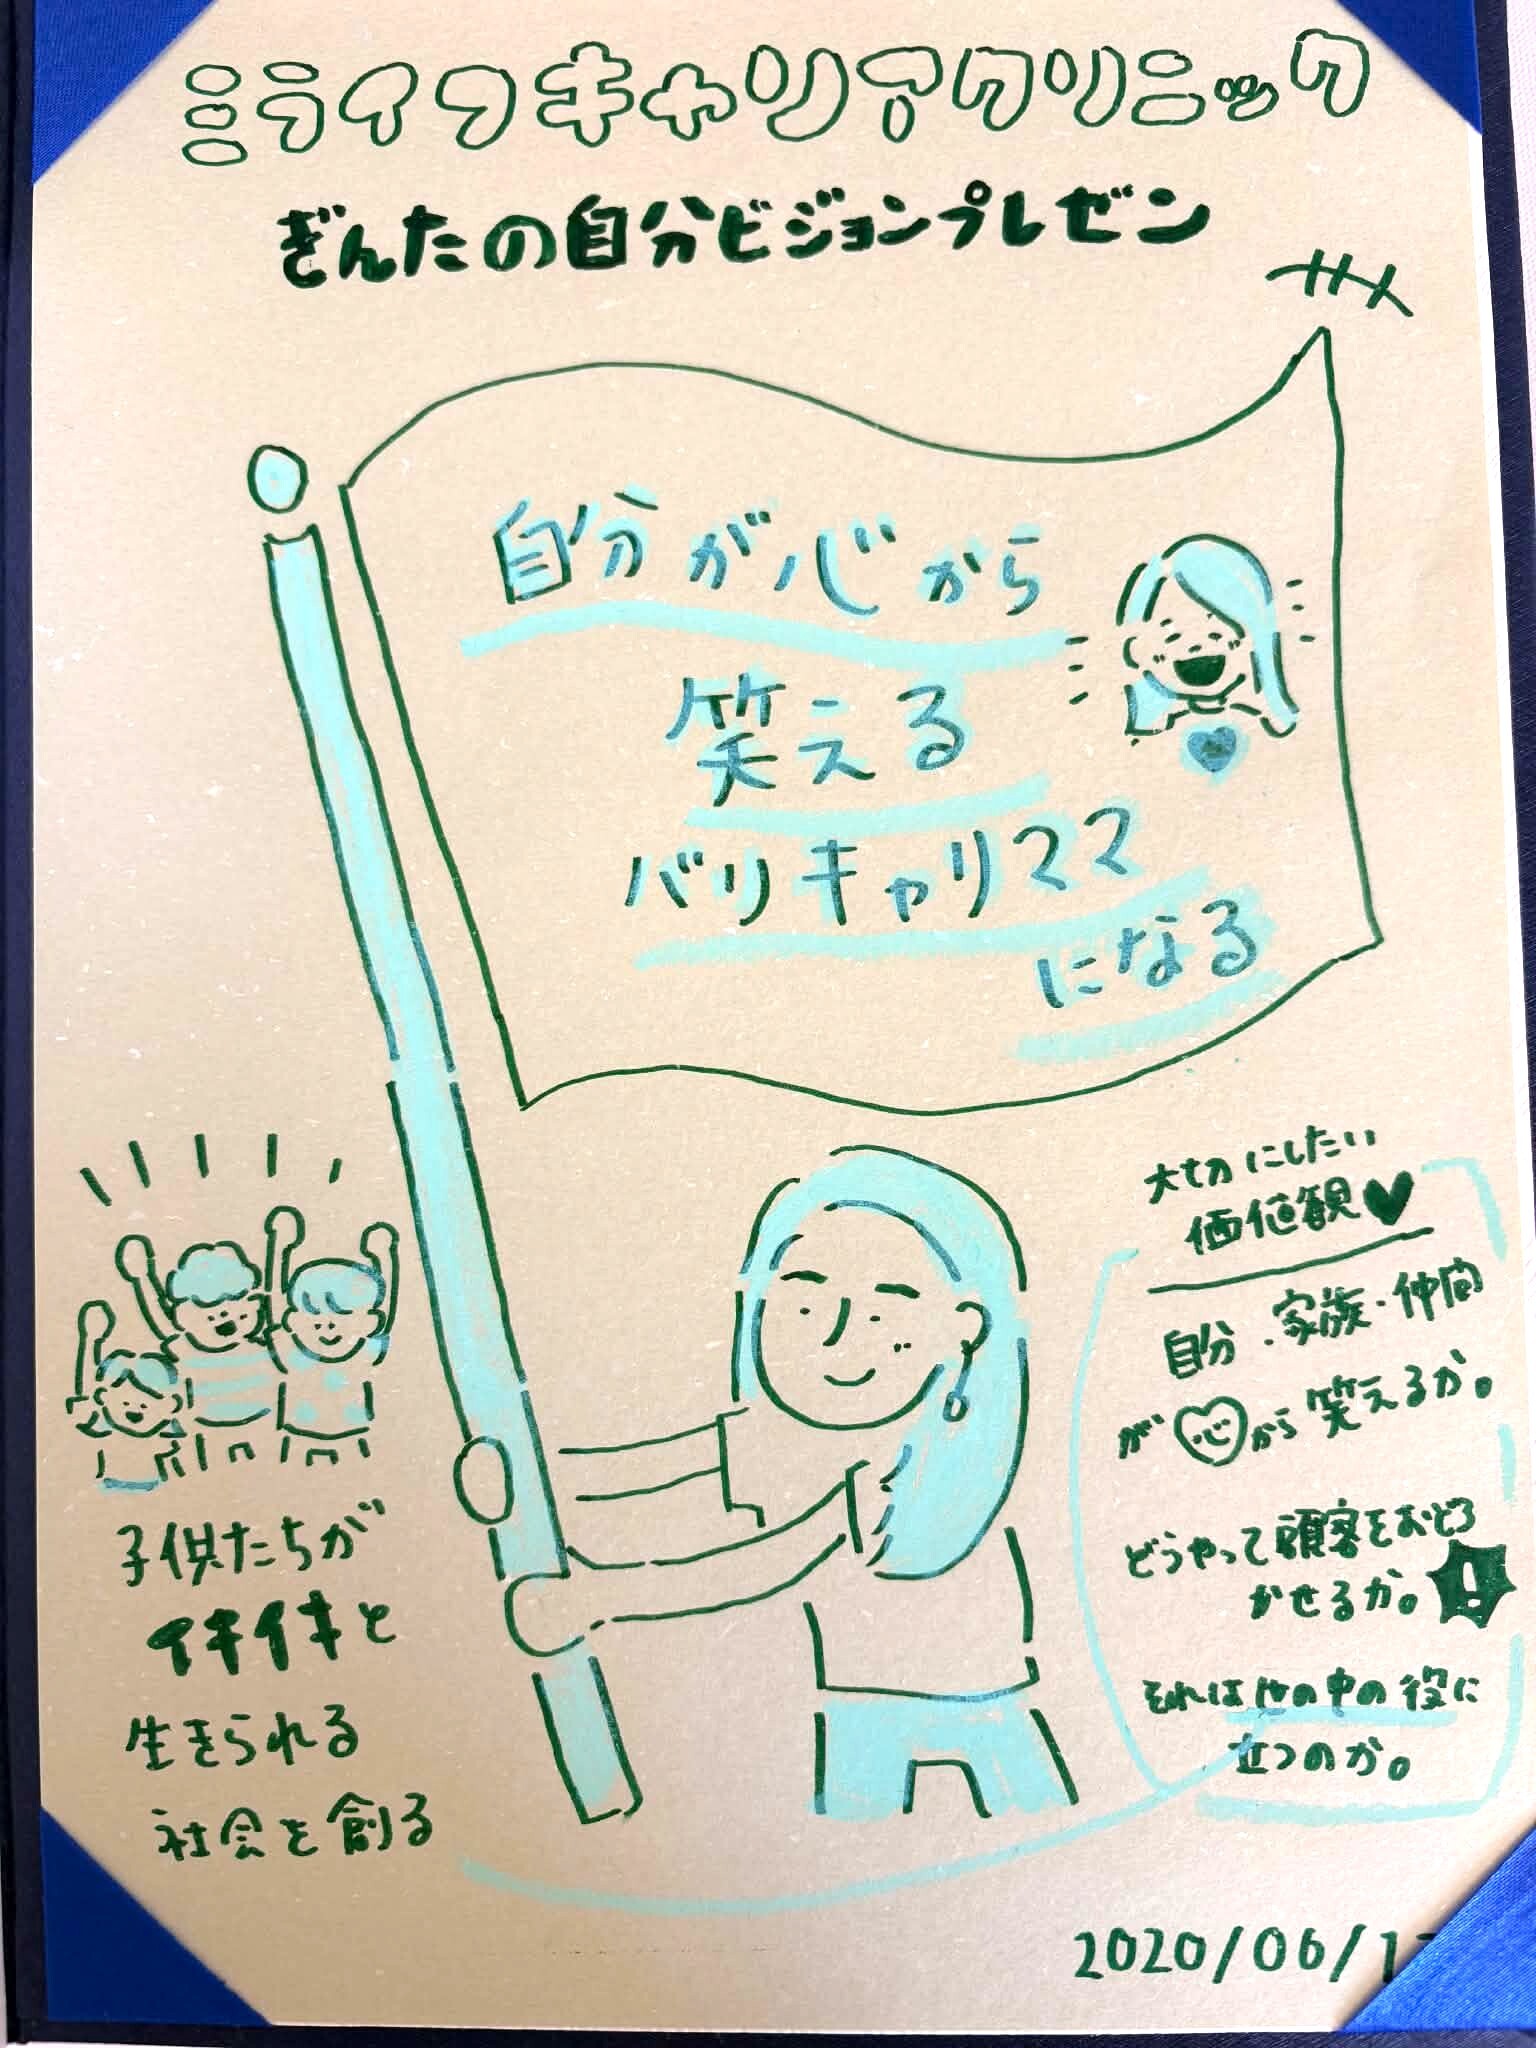 ミライフキャリアクリニック
ぎんたの自分ビジョンプレゼン
自分が心から
笑える
バリキャリママ
になる
子供たちが
イキイキと
生きられる
社会を創る
大切にしたい
価値観
自分・家族・仲間
が心から笑えるか。
どうやって顧客をおどろ
かせるか。!
それは世の中の役に
立つのか。
2020/06/1